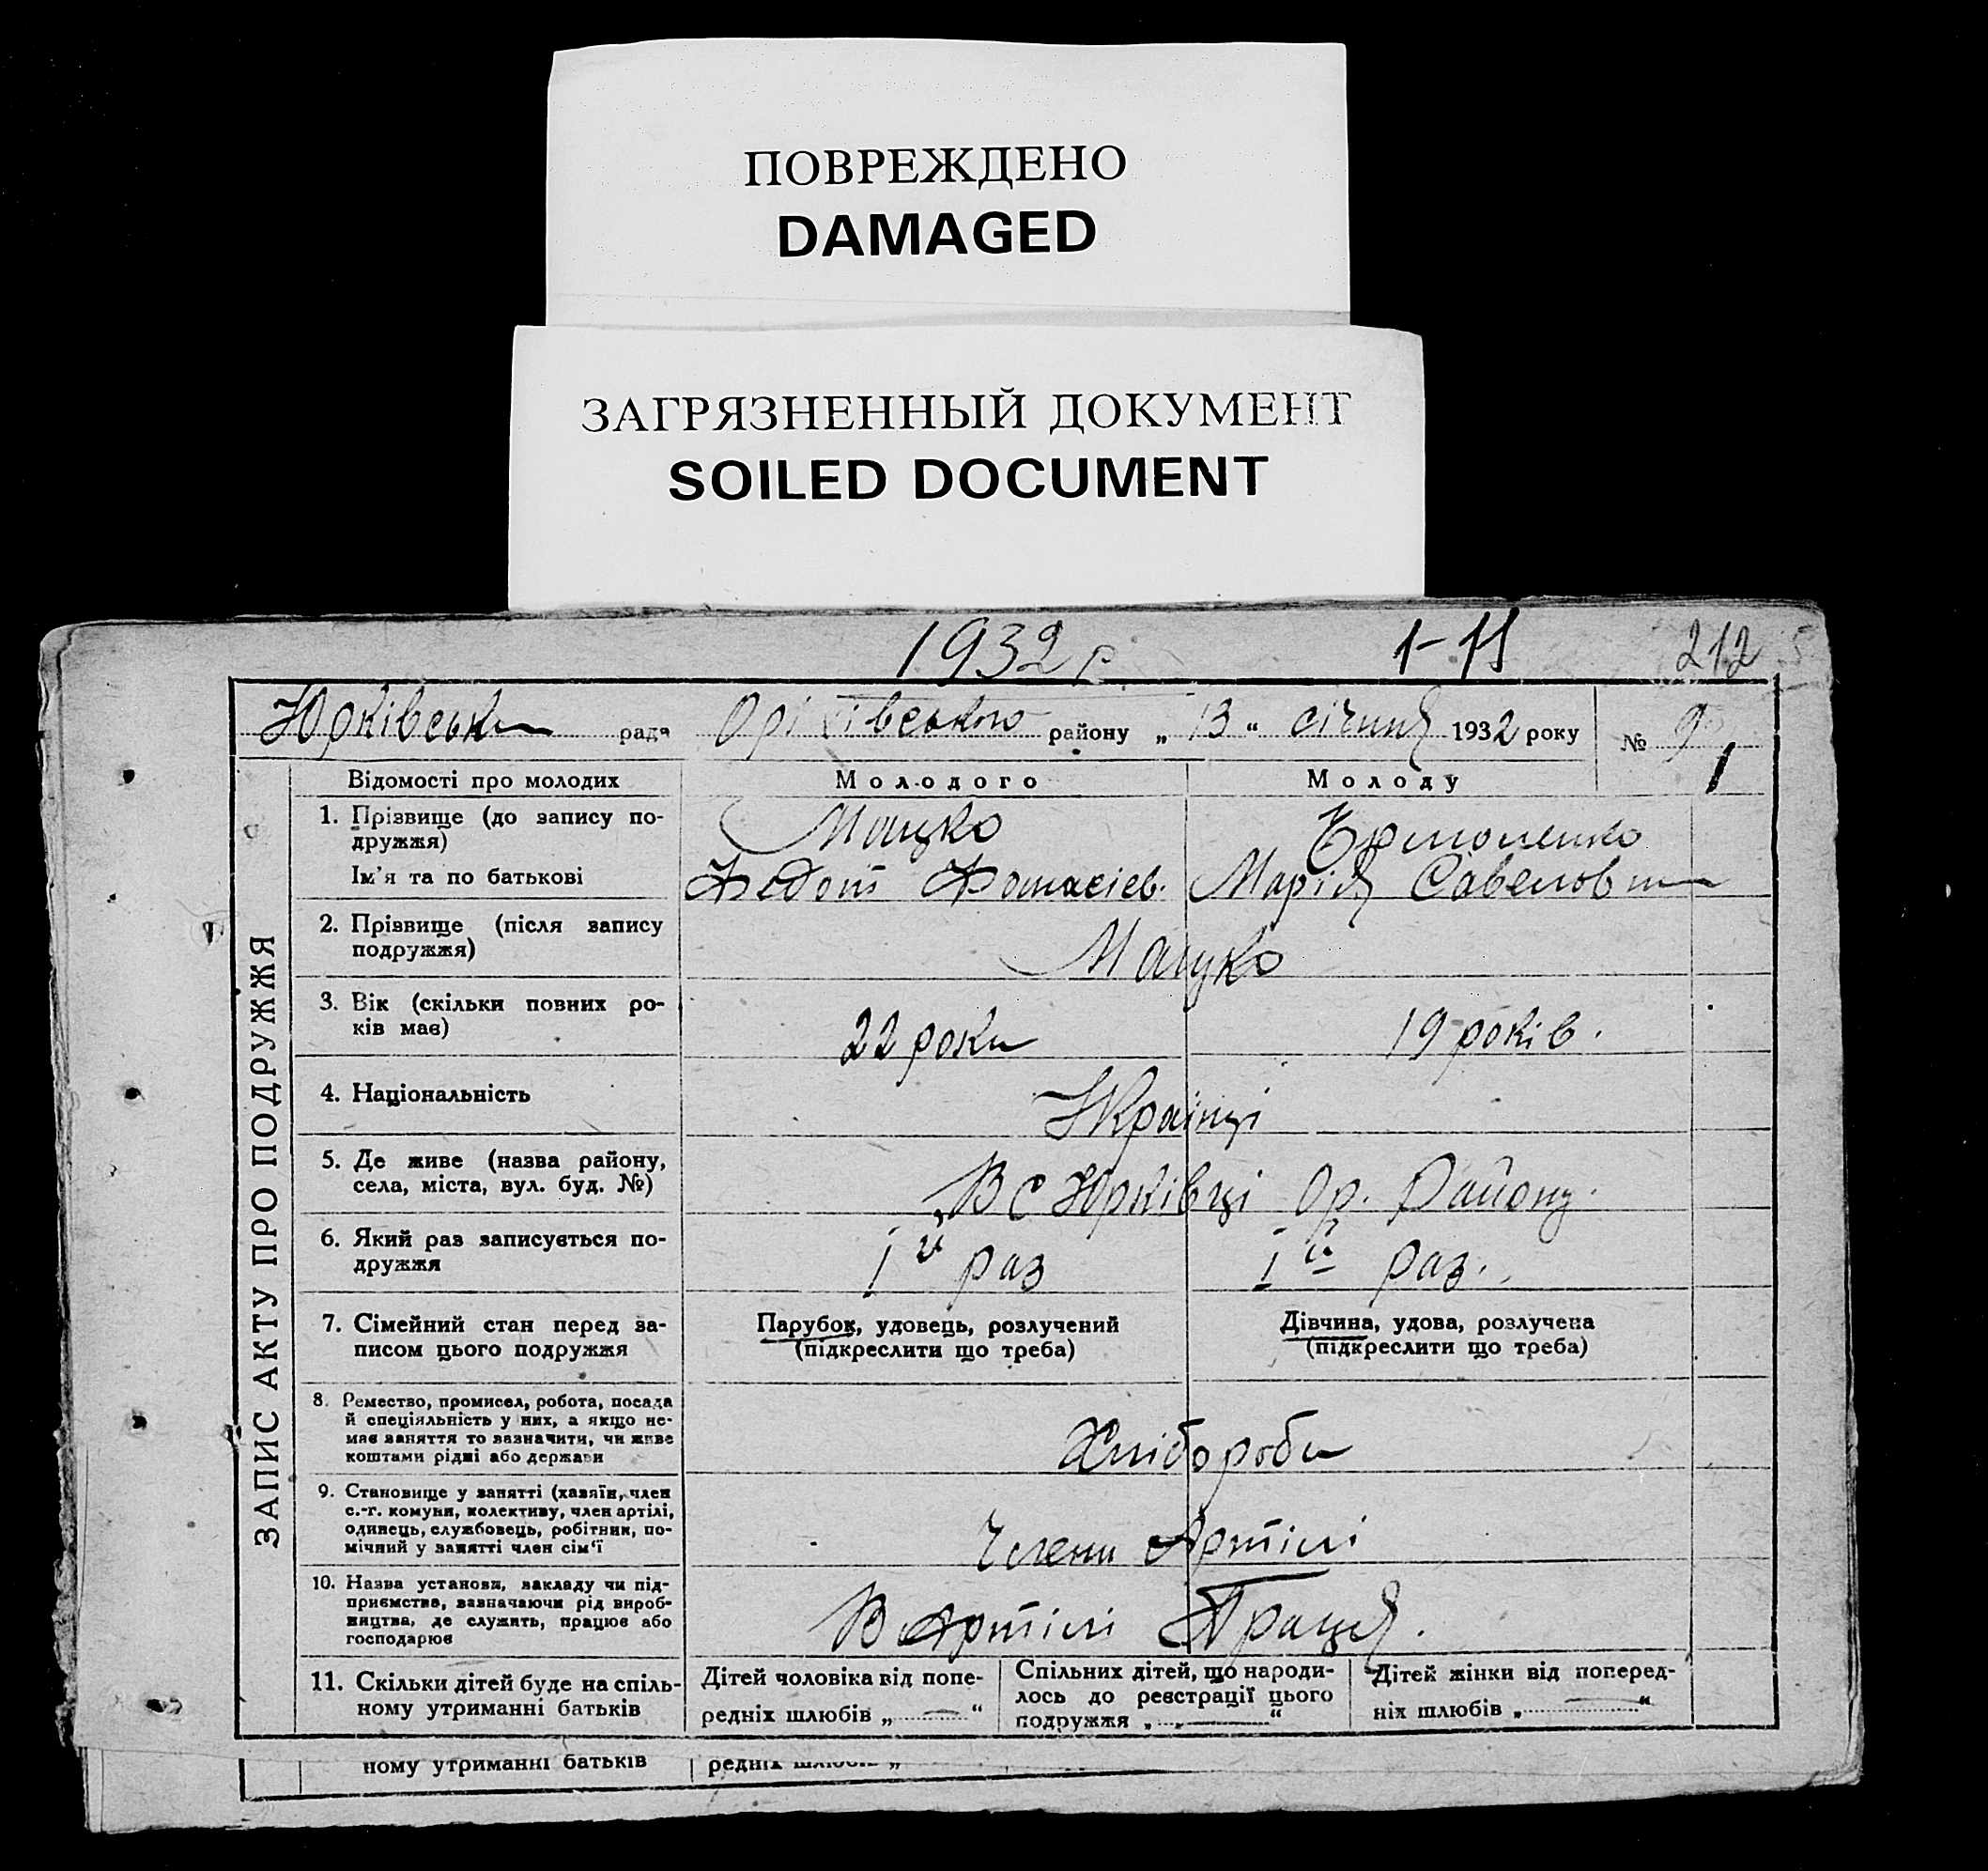 ПОВРЕЖДЕНО
DAMAGED
ЗАГРЯЗНЕННЫЙ ДОКУМЕНТ
SOILED DOCUMENT
1932 р 1-11 212
Юрківська рада району „ 13 “ січня 1932 року № 9 1
ЗАПИС АКТУ ПРО ПОДРУЖЖЯ
Відомості про молодих Молодого Молоду
1. Прізвище (до запису по-
дружжя) Мацко
Ім'я та по батькові Федот Марія
2. Прізвище (після запису
подружжя) Мацко
3. Вік (скільки повних ро-
ків має) 22 роки 19 років.
4. Національність Українці
5. Де живе (назва району,
села, міста, вул. буд. №) В с Юрківці Ор. Району.
6. Який раз записується по-
дружжя І й раз І й раз.
7. Сімейний стан перед за-
писом цього подружжя
Парубок, удовець, розлучений
(підкреслити що треба)
Дівчина, удова, розлучена
(підкреслити що треба)
8. Ремество, промисел, робота, посада
й спеціяльність у них, а якщо не-
має заняття то зазначити, чи живе
коштами рідні або держави
Хлібороби
9. Становище у занятті (хазяїн, член
с.-г. комуни, колективу, член артілі,
одинець, службовець, робітник, по-
мічний у занятті член сім'ї
Члени Артілі
10. Назва установи, закладу чи під-
приємства, зазначаючи рід вироб-
ництва, де служить, працює або
господарює
В Артілі Праця.
11. Скільки дітей буде на спіль-
ному утриманні батьків
Дітей чоловіка від попе-
редніх шлюбів „ — “
Спільних дітей, що народи-
лось до реєстрації цього
подружжя „ — “
Дітей жінки від поперед-
ніх шлюбів „ — “
ному утриманні батьків редніх шлюбів „